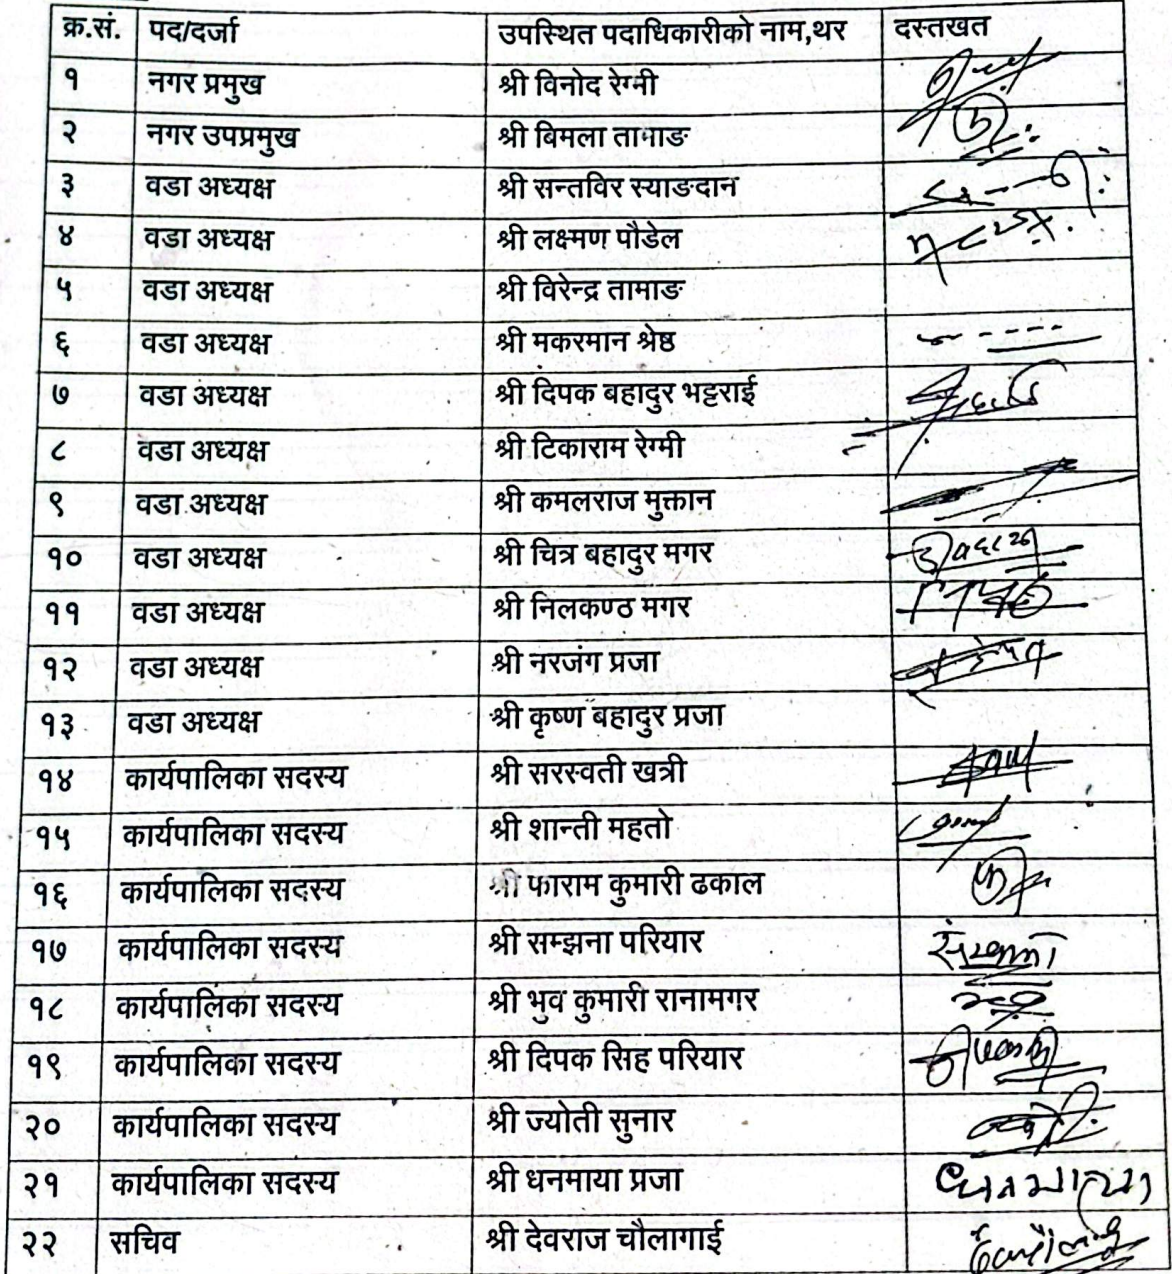 क्र.सं. पद/दर्जा उपस्थित पदाधिकारीको नाम,थर दस्तखत
१ नगर प्रमुख श्री विनोद रेग्मी
२ नगर उपप्रमुख श्री बिमला तामाङ
३ वडा अध्यक्ष श्री सन्तविर स्याङदान
४ वडा अध्यक्ष श्री लक्ष्मण पौडेल
५ वडा अध्यक्ष श्री विरेन्द्र तामाङ
६ वडा अध्यक्ष श्री मकरमान श्रेष्ठ
७ वडा अध्यक्ष श्री दिपक बहादुर भट्टराई
८ वडा अध्यक्ष श्री टिकाराम रेग्मी
९ वडा अध्यक्ष श्री कमलराज मुक्तान
१० वडा अध्यक्ष श्री चित्र बहादुर मगर
११ वडा अध्यक्ष श्री निलकण्ठ मगर
१२ वडा अध्यक्ष श्री नरजंग प्रजा
१३ वडा अध्यक्ष श्री कृष्ण बहादुर प्रजा
१४ कार्यपालिका सदस्य श्री सरस्वती खत्री
१५ कार्यपालिका सदस्य श्री शान्ती महतो
१६ कार्यपालिका सदस्य श्री फाराम कुमारी ढकाल
१७ कार्यपालिका सदस्य श्री सम्झना परियार
१८ कार्यपालिका सदस्य श्री भुव कुमारी रानामगर
१९ कार्यपालिका सदस्य श्री दिपक सिह परियार
२० कार्यपालिका सदस्य श्री ज्योती सुनार
२१ कार्यपालिका सदस्य श्री धनमाया प्रजा धनमाया
२२ सचिव श्री देवराज चौलागाई